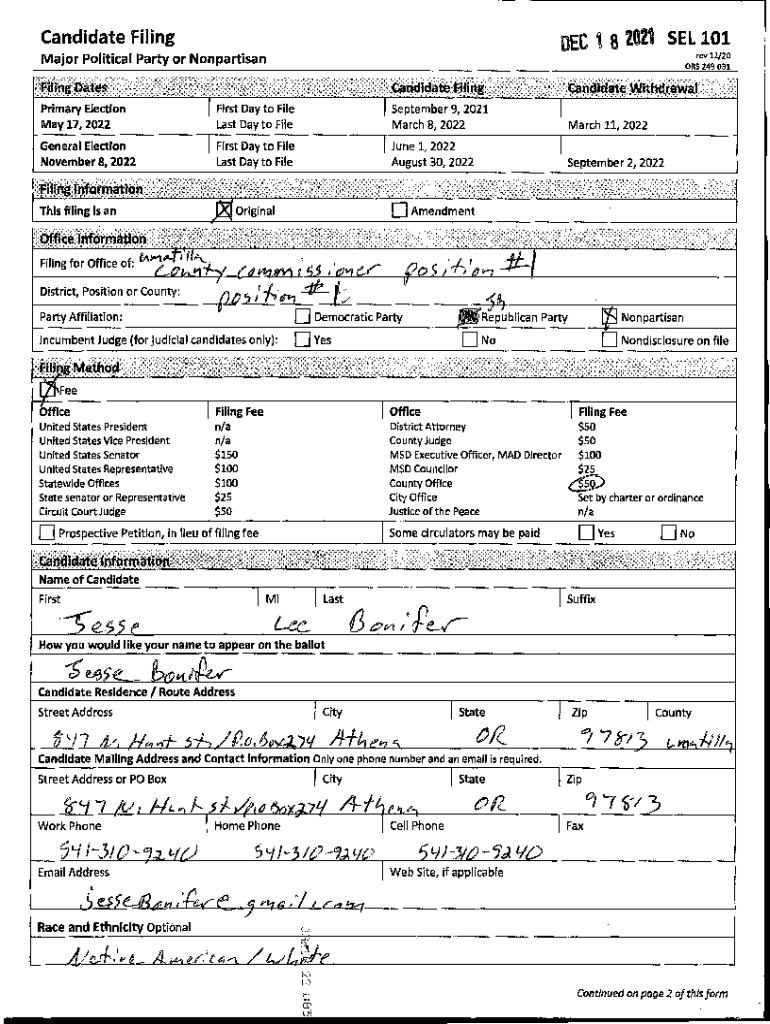 Candidate Filing
DEC 18 2021 SEL 101
Major Political Party or Nonpartisan
rev 11/20
ORS 249 031
Filing Dates Candidate Filing Candidate Withdrawal
Primary Election First Day to File September 9, 2021
May 17, 2022 Last Day to File March 8, 2022 March 11, 2022
General Election First Day to File June 1, 2022
November 8, 2022 Last Day to File August 30, 2022 September 2, 2022
Filing Information
This filing is an Original Amendment
Office Information
Filing for Office of: umatilla county commissioner position #1
District, Position or County: position #1
Party Affiliation: Democratic Party Republican Party Nonpartisan
JB
Incumbent Judge (for judicial candidates only): Yes No Nondisclosure on file
Filing Method
Fee
Office Filing Fee Office Filing Fee
United States President n/a District Attorney $50
United States Vice President n/a County Judge $50
United States Senator $150 MSD Executive Officer, MAD Director $100
United States Representative $100 MSD Councilor $25
Statewide Offices $100 County Office $50
State senator or Representative $25 City Office Set by charter or ordinance
Circuit Court Judge $50 Justice of the Peace n/a
Prospective Petition, in lieu of filing fee Some circulators may be paid Yes No
Candidate Information
Name of Candidate
First MI Last Suffix
Jesse Lee Bonifer
How you would like your name to appear on the ballot
Jesse Bonifer
Candidate Residence / Route Address
Street Address City State Zip County
847 N. Hunt st / P.O. Box 274 Athena OR 97813 umatilla
Candidate Mailing Address and Contact Information Only one phone number and an email is required.
Street Address or PO Box City State Zip
847 N. Hunt st / po Box 274 Athena OR 97813
Work Phone Home Phone Cell Phone Fax
541-310-9240 541-310-9240 541-310-9240
Email Address Web Site, if applicable
jesseBonifer@gmail.com
Race and Ethnicity Optional
Native American / White
Continued on page 2 of this form